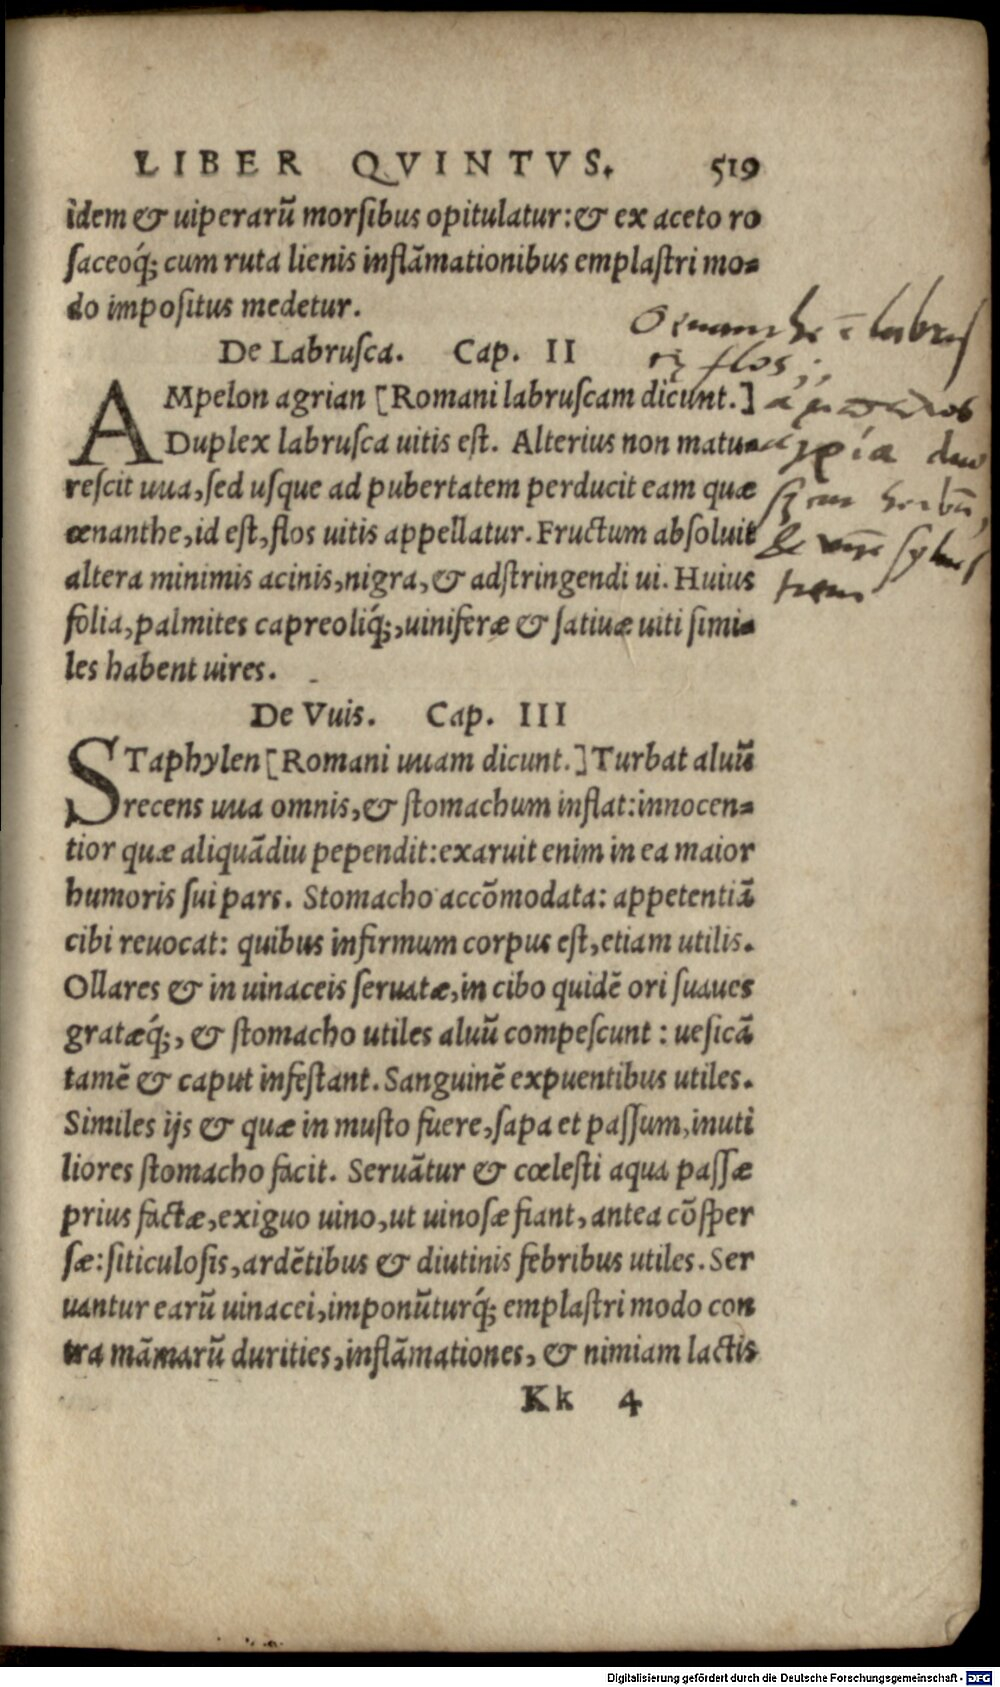 LIBER QVINTVS. 519
idem & uiperarũ morſibus opitulatur:& ex aceto ro
ſaceoq́; cum ruta lienis inflãmationibus emplaſtri mo-
do impoſitus medetur.
De Labruſca. Cap. II
AMpelon agrian [Romani labruſcam dicunt.]
Duplex labruſca uitis eſt. Alterius non matu-
reſcit uua,ſed uſque ad pubertatem perducit eam quæ
œnanthe,id eſt,flos uitis appellatur. Fructum abſoluit
altera minimis acinis,nigra,& adſtringendi ui. Huius
folia,palmites capreoliq́;,uiniferæ & ſatiuæ uiti ſimi-
les habent uires.
flos
De Vuis. Cap. III
STaphylen [Romani uuam dicunt.] Turbat aluũ
recens uua omnis,& ſtomachum inflat:innocen-
tior quæ aliquãdiu pependit:exaruit enim in ea maior
humoris ſui pars. Stomacho accõmodata: appetentiã
cibi reuocat: quibus infirmum corpus eſt,etiam utilis.
Ollares & in uinaceis ſeruatæ,in cibo quidẽ ori ſuaues
gratæq́;, & ſtomacho utiles aluũ compeſcunt : ueſicã
tamẽ & caput infeſtant. Sanguinẽ expuentibus utiles.
Similes ijs & quæ in muſto fuere,ſapa et paſſum,inuti
liores ſtomacho facit. Seruãtur & cœleſti aqua paſſæ
prius factæ,exiguo uino,ut uinoſæ fiant,antea cõſper
ſæ:ſiticuloſis,ardẽtibus & diutinis febribus utiles. Ser
uantur earũ uinacei,imponũturq́; emplaſtri modo con
tra mãmarũ durities,inflãmationes, & nimiam lactis
Kk 4
Digitalisierung gefördert durch die Deutsche Forschungsgemeinschaft - DFG